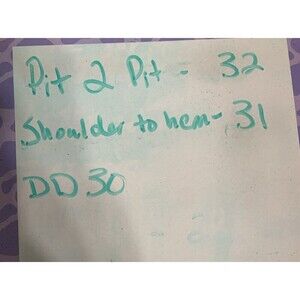 Pit 2 Pit - 32
Shoulder to hem - 31
DD 30